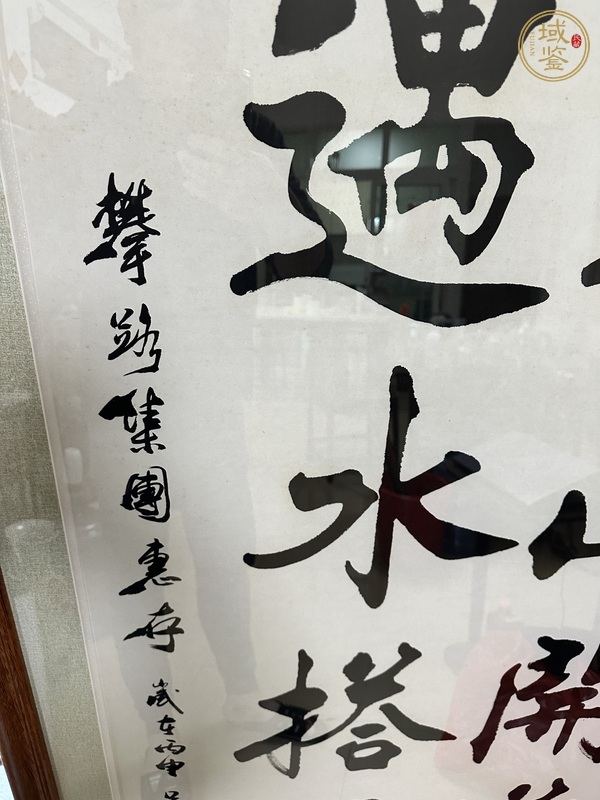 山開
遇水搭
攀跨集團惠存
歲在丙申
域鉴